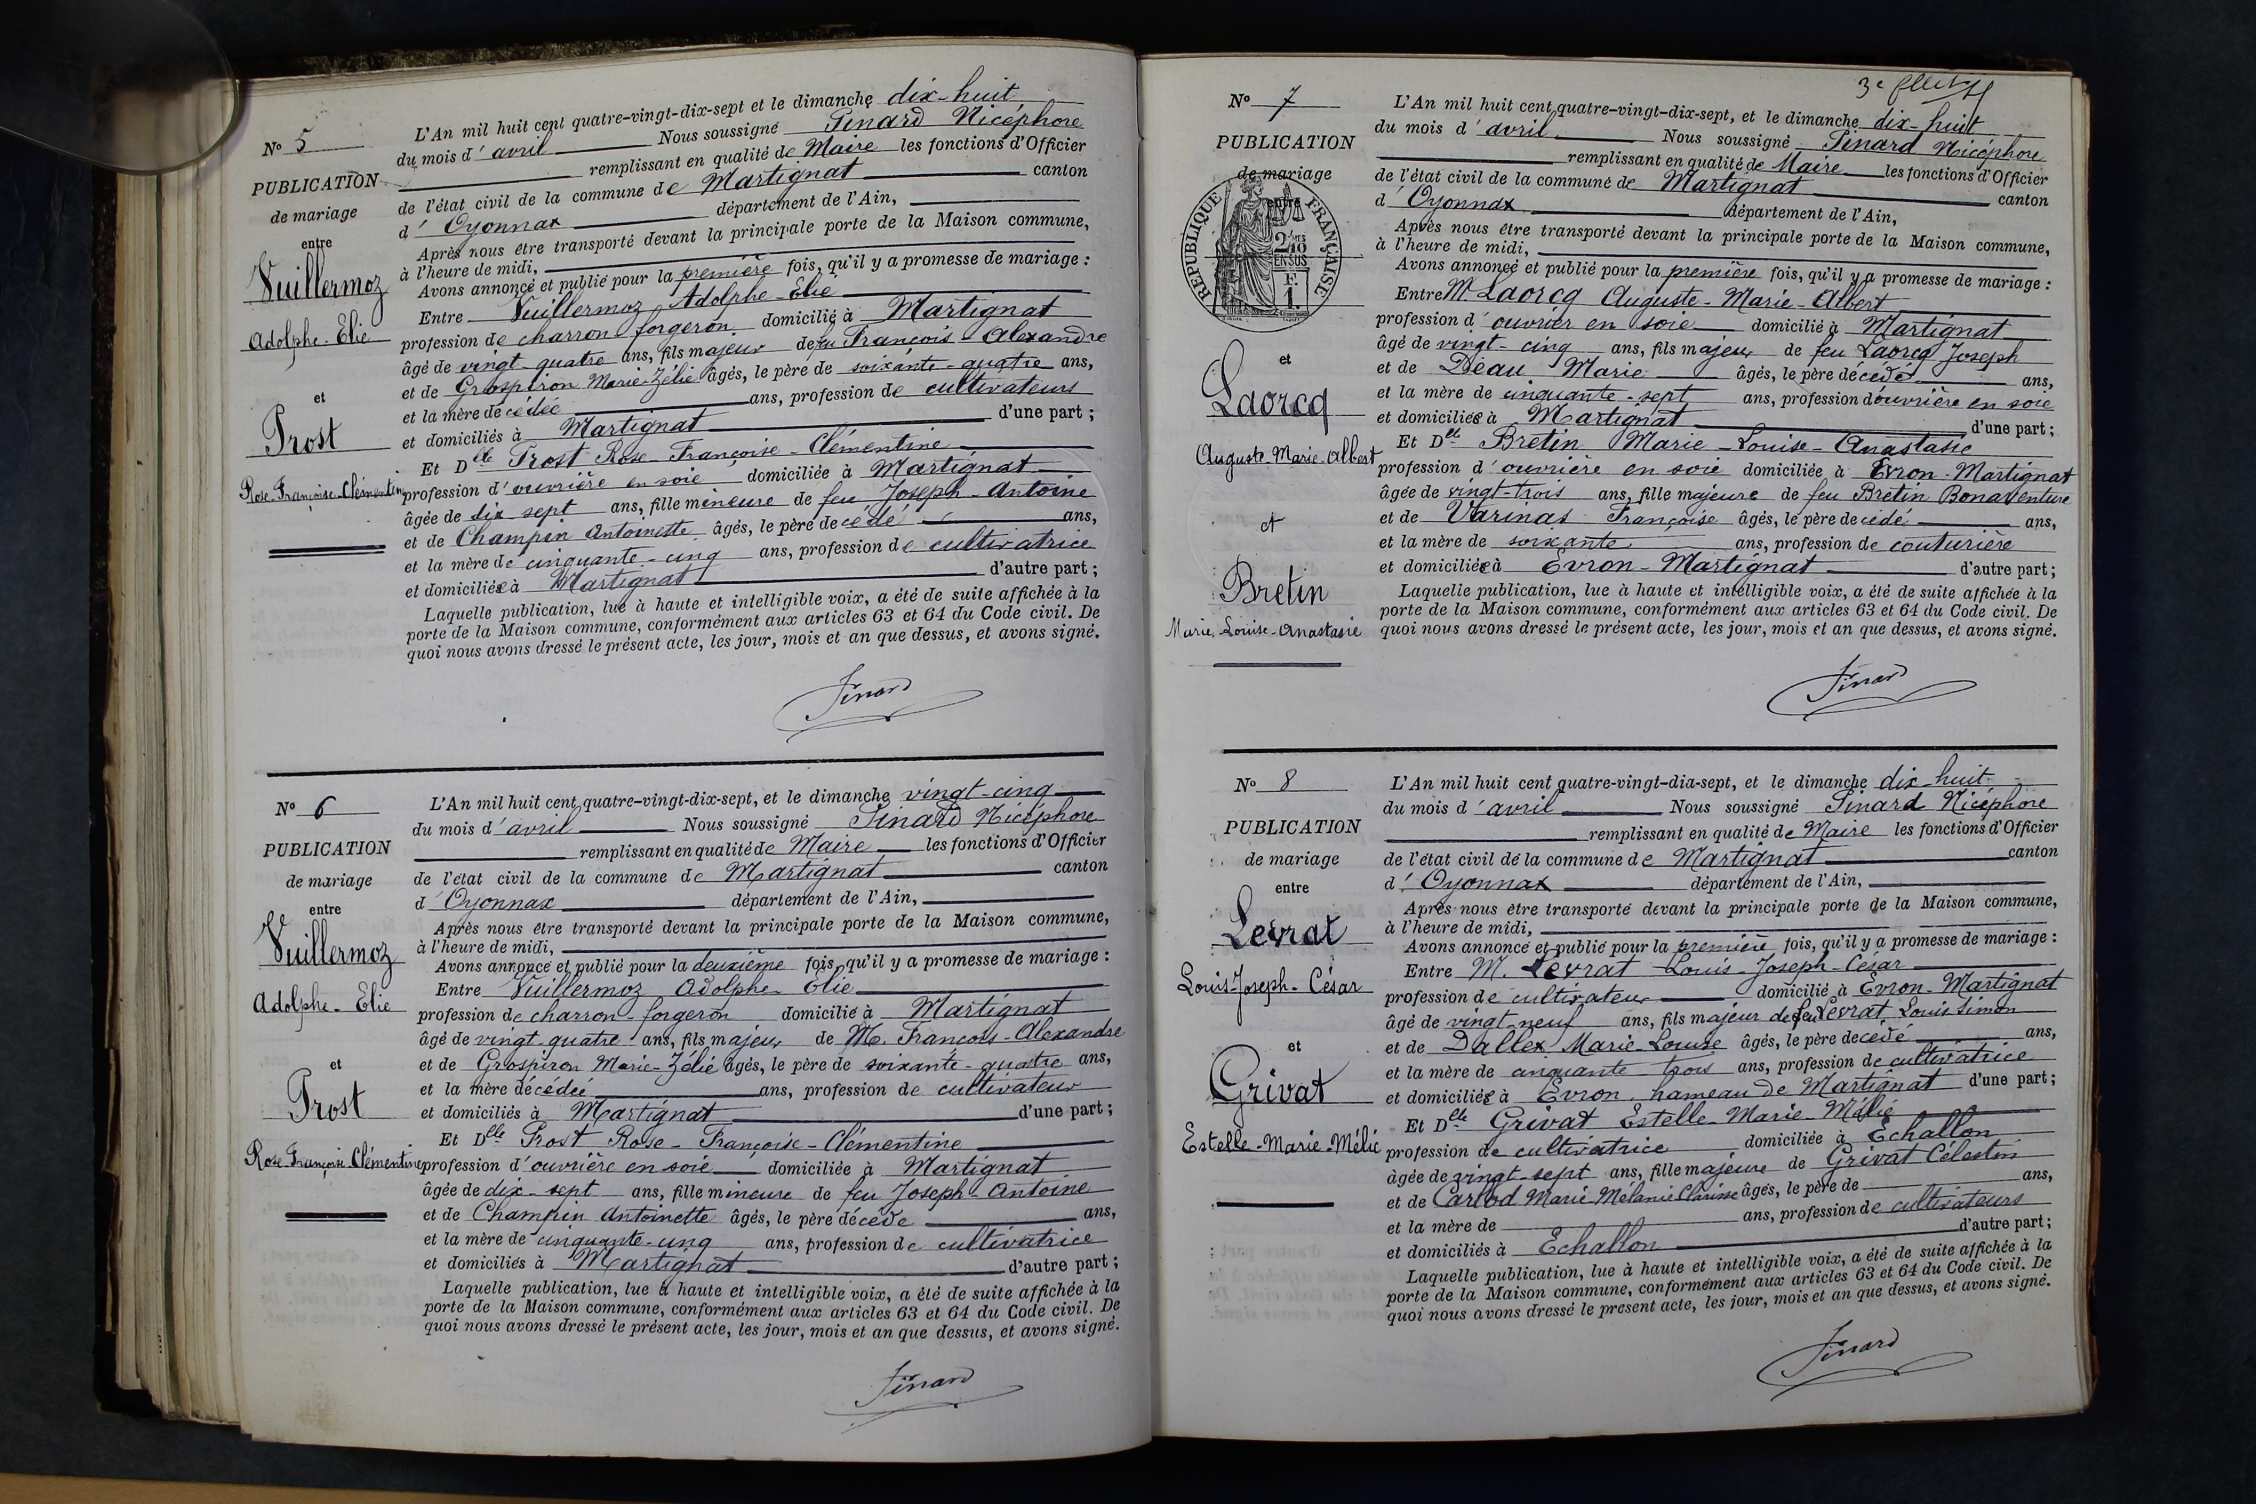 N° 5
PUBLICATION
de mariage
entre
Vuillermoz
Adolphe-Elie
et
Prost
Rose-Françoise-Clémentine
L'An mil huit cent quatre-vingt-dix-sept et le dimanche dix-huit
du mois d'avril Nous soussigné Sinard Nicéphore
remplissant en qualité de Maire les fonctions d'Officier
de l'état civil de la commune de Martignat canton
d'Oyonnax département de l'Ain,
Après nous être transporté devant la principale porte de la Maison commune,
à l'heure de midi,
Avons annoncé et publié pour la première fois, qu'il y a promesse de mariage :
Entre Vuillermoz Adolphe-Elie
profession de charron-forgeron domicilié à Martignat
âgé de vingt-quatre ans, fils majeur de feu François-Alexandre
et de Grospiron Marie-Zélie âgés, le père de soixante-quatre ans,
et la mère décédée ans, profession de cultivateurs
et domiciliés à Martignat d'une part ;
Et Dlle Prost Rose-Françoise-Clémentine
profession d'ouvrière en soie domiciliée à Martignat
âgée de dix sept ans, fille mineure de feu Joseph-Antoine
et de Champin Antoinette âgés, le père decédé ans,
et la mère de cinquante-cinq ans, profession de cultivatrice
et domiciliée à Martignat d'autre part ;
Laquelle publication, lue à haute et intelligible voix, a été de suite affichée à la
porte de la Maison commune, conformément aux articles 63 et 64 du Code civil. De
quoi nous avons dressé le présent acte, les jour, mois et an que dessus, et avons signé.
Sinard
N° 6
PUBLICATION
de mariage
entre
Vuillermoz
Adolphe-Elie
et
Prost
Rose-Françoise Clémentine
L'An mil huit cent quatre-vingt-dix-sept, et le dimanche vingt-cinq
du mois d'avril Nous soussigné Sinard Nicéphore
remplissant en qualité de Maire les fonctions d'Officier
de l'état civil de la commune de Martignat canton
d'Oyonnax département de l'Ain,
Après nous être transporté devant la principale porte de la Maison commune,
à l'heure de midi,
Avons annoncé et publié pour la deuxième fois, qu'il y a promesse de mariage :
Entre Vuillermoz Adolphe-Elie
profession de charron-forgeron domicilié à Martignat
âgé de vingt-quatre ans, fils majeur de M. François-Alexandre
et de Grospiron Marie-Zélie âgés, le père de soixante-quatre ans,
et la mère décédée ans, profession de cultivateur
et domiciliés à Martignat d'une part ;
Et Dlle Prost Rose-Françoise-Clémentine
profession d'ouvrière en soie domiciliée à Martignat
âgée de dix-sept ans, fille mineure de feu Joseph-Antoine
et de Champin Antoinette âgés, le père décédé ans,
et la mère de cinquante-cinq ans, profession de cultivatrice
et domiciliés à Martignat d'autre part ;
Laquelle publication, lue à haute et intelligible voix, a été de suite affichée à la
porte de la Maison commune, conformément aux articles 63 et 64 du Code civil. De
quoi nous avons dressé le présent acte, les jour, mois et an que dessus, et avons signé.
Sinard
3e
N° 7
PUBLICATION
de mariage
entre
RÉPUBLIQUE FRANÇAISE
2/10
EN SUS
F.
1.
et
Laorcq
Auguste-Marie-Albert
et
Bretin
Marie-Louise-Anastasie
L'An mil huit cent quatre-vingt-dix-sept, et le dimanche dix-huit
du mois d'avril Nous soussigné Sinard Nicéphore
remplissant en qualité de Maire les fonctions d'Officier
de l'état civil de la commune de Martignat canton
d'Oyonnax département de l'Ain,
Après nous être transporté devant la principale porte de la Maison commune,
à l'heure de midi,
Avons annoncé et publié pour la première fois, qu'il y a promesse de mariage :
Entre M. Laorcq Auguste-Marie-Albert
profession d'ouvrier en soie domicilié à Martignat
âgé de vingt-cinq ans, fils majeur de feu Laorcq Joseph
et de Déau Marie âgés, le père décédé ans,
et la mère de cinquante-sept ans, profession d'ouvrière en soie
et domiciliée à Martignat d'une part ;
Et Dlle Bretin Marie-Louise-Anastasie
profession d'ouvrière en soie domiciliée à Evron-Martignat
âgée de vingt-trois ans, fille majeure de feu Bretin Bonaventure
et de Varinas Françoise âgés, le père decédé ans,
et la mère de soixante ans, profession de couturière
et domiciliée à Evron-Martignat d'autre part ;
Laquelle publication, lue à haute et intelligible voix, a été de suite affichée à la
porte de la Maison commune, conformément aux articles 63 et 64 du Code civil. De
quoi nous avons dressé le présent acte, les jour, mois et an que dessus, et avons signé.
Sinard
N° 8
PUBLICATION
de mariage
entre
Levrat
Louis-Joseph-César
et
Grivat
Estelle-Marie-Mélie
L'An mil huit cent quatre-vingt-dia-sept, et le dimanche dix-huit
du mois d'avril Nous soussigné Sinard Nicéphore
remplissant en qualité de Maire les fonctions d'Officier
de l'état civil de la commune de Martignat canton
d'Oyonnax département de l'Ain,
Après nous être transporté devant la principale porte de la Maison commune,
à l'heure de midi,
Avons annoncé et publié pour la première fois, qu'il y a promesse de mariage :
Entre M. Levrat Louis-Joseph-César
profession de cultivateur domicilié à Evron-Martignat
âgé de vingt-neuf ans, fils majeur de feu Levrat Louis Simon
et de Dallex Marie-Louise âgés, le père decédé ans,
et la mère de cinquante trois ans, profession de cultivatrice
et domiciliée à Evron, hameau de Martignat d'une part ;
Et Dlle Grivat Estelle-Marie-Mélie
profession de cultivatrice domiciliée à Echallon
âgée de vingt-sept ans, fille majeure de Grivat Célestin
et de Carlod Marie Mélanie Clarisse âgés, le père de ans,
et la mère de ans, profession de cultivateurs
et domiciliés à Echallon d'autre part ;
Laquelle publication, lue à haute et intelligible voix, a été de suite affichée à la
porte de la Maison commune, conformément aux articles 63 et 64 du Code civil. De
quoi nous avons dressé le présent acte, les jour, mois et an que dessus, et avons signé.
Sinard